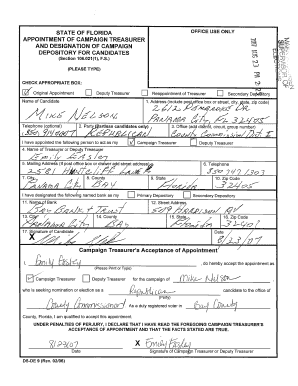 STATE OF FLORIDA
APPOINTMENT OF CAMPAIGN TREASURER
AND DESIGNATION OF CAMPAIGN
DEPOSITORY FOR CANDIDATES
(Section 106.021(1), F.S.)
(PLEASE TYPE)
OFFICE USE ONLY
CHECK APPROPRIATE BOX:
Original Appointment Deputy Treasurer Reappointment of Treasurer Secondary Depository
Name of Candidate
MIKE NELSON
1. Address (include post office box or street, city, state, zip code)
2612
PANAMA City, FL 32405
Telephone (optional)
2. Party (partisan candidates only)
REPUBLICAN
3. Office (add district, circuit, group number)
County Commission Dist II
I have appointed the following person to act as my Campaign Treasurer Deputy Treasurer
4. Name of Treasurer or Deputy Treasurer
Emily
5. Mailing Address (If post office box or drawer add street address)
2581
6. Telephone
850 747 1303
7. City
PANAMA City
8. County
BAY
9. State
Florida
10. Zip Code
32405
I have designated the following named bank as my Primary Depository Secondary Depository
11. Name of Bank
BAY BANK & TRUST
12. Street Address
HARRISON AV
13. City
PANAMA City
14. County
BAY
15. State
Florida
16. Zip Code
17. Signature of Candidate
X
Date
8/23/07
Campaign Treasurer's Acceptance of Appointment
I, Emily , do hereby accept the appointment as
(Please Print or Type)
Campaign Treasurer Deputy Treasurer for the campaign of Mike Nelson
who is seeking nomination or election as a Republican candidate to the office of
(Party)
County Commissioner As a duly registered voter in Bay County
County, Florida, I am qualified to accept this appointment.
UNDER PENALTIES OF PERJURY, I DECLARE THAT I HAVE READ THE FOREGOING CAMPAIGN TREASURER'S
ACCEPTANCE OF APPOINTMENT AND THAT THE FACTS STATED ARE TRUE.
8/23/07
X Emily
Date
Signature of Campaign Treasurer or Deputy Treasurer
DS-DE 9 (Rev. 02/96)